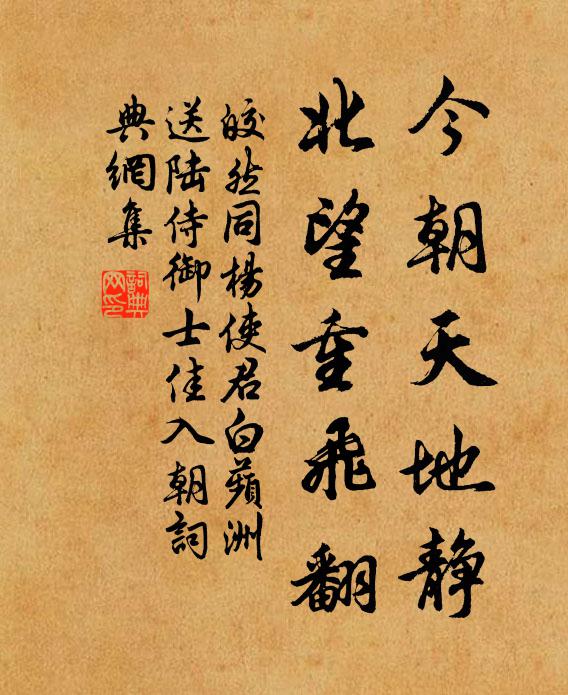 今朝天地静
北望重飛翻
皎然同楊使君白蘋洲
送陸侍御士佳入朝詞
典網集
詞典
网印